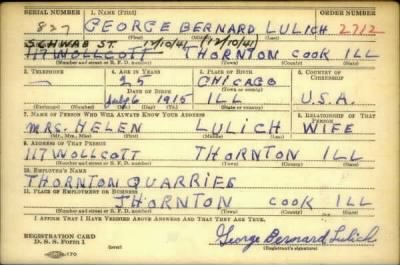 SERIAL NUMBER 1. NAME (Print) ORDER NUMBER
827 GEORGE BERNARD LULICH 2712
SCHWAB ST. 12/10/41 (12/10/41)
117 WOLLCOTT THORNTON COOK ILL
(Number and street or R. F. D. number) (Town) (County) (State)
3. TELEPHONE 4. AGE IN YEARS 5. PLACE OF BIRTH 6. COUNTRY OF CITIZENSHIP
— 25 CHICAGO
DATE OF BIRTH (Town or county)
July 6 1915 ILL U.S.A.
(Mo.) (Day) (Yr.) (State or country)
7. NAME OF PERSON WHO WILL ALWAYS KNOW YOUR ADDRESS 8. RELATIONSHIP OF THAT PERSON
MRS. HELEN LULICH WIFE
(Mr., Mrs., Miss) (First) (Middle) (Last)
9. ADDRESS OF THAT PERSON
117 WOLLCOTT THORNTON ILL
(Number and street or R. F. D. number) (Town) (County) (State)
10. EMPLOYER'S NAME
THORNTON QUARRIES
11. PLACE OF EMPLOYMENT OR BUSINESS
THORNTON COOK ILL
(Number and street or R. F. D. number) (Town) (County) (State)
I AFFIRM THAT I HAVE VERIFIED ABOVE ANSWERS AND THAT THEY ARE TRUE.
REGISTRATION CARD
D. S. S. Form 1 (over) George Bernard Lulich
(Registrant's signature)